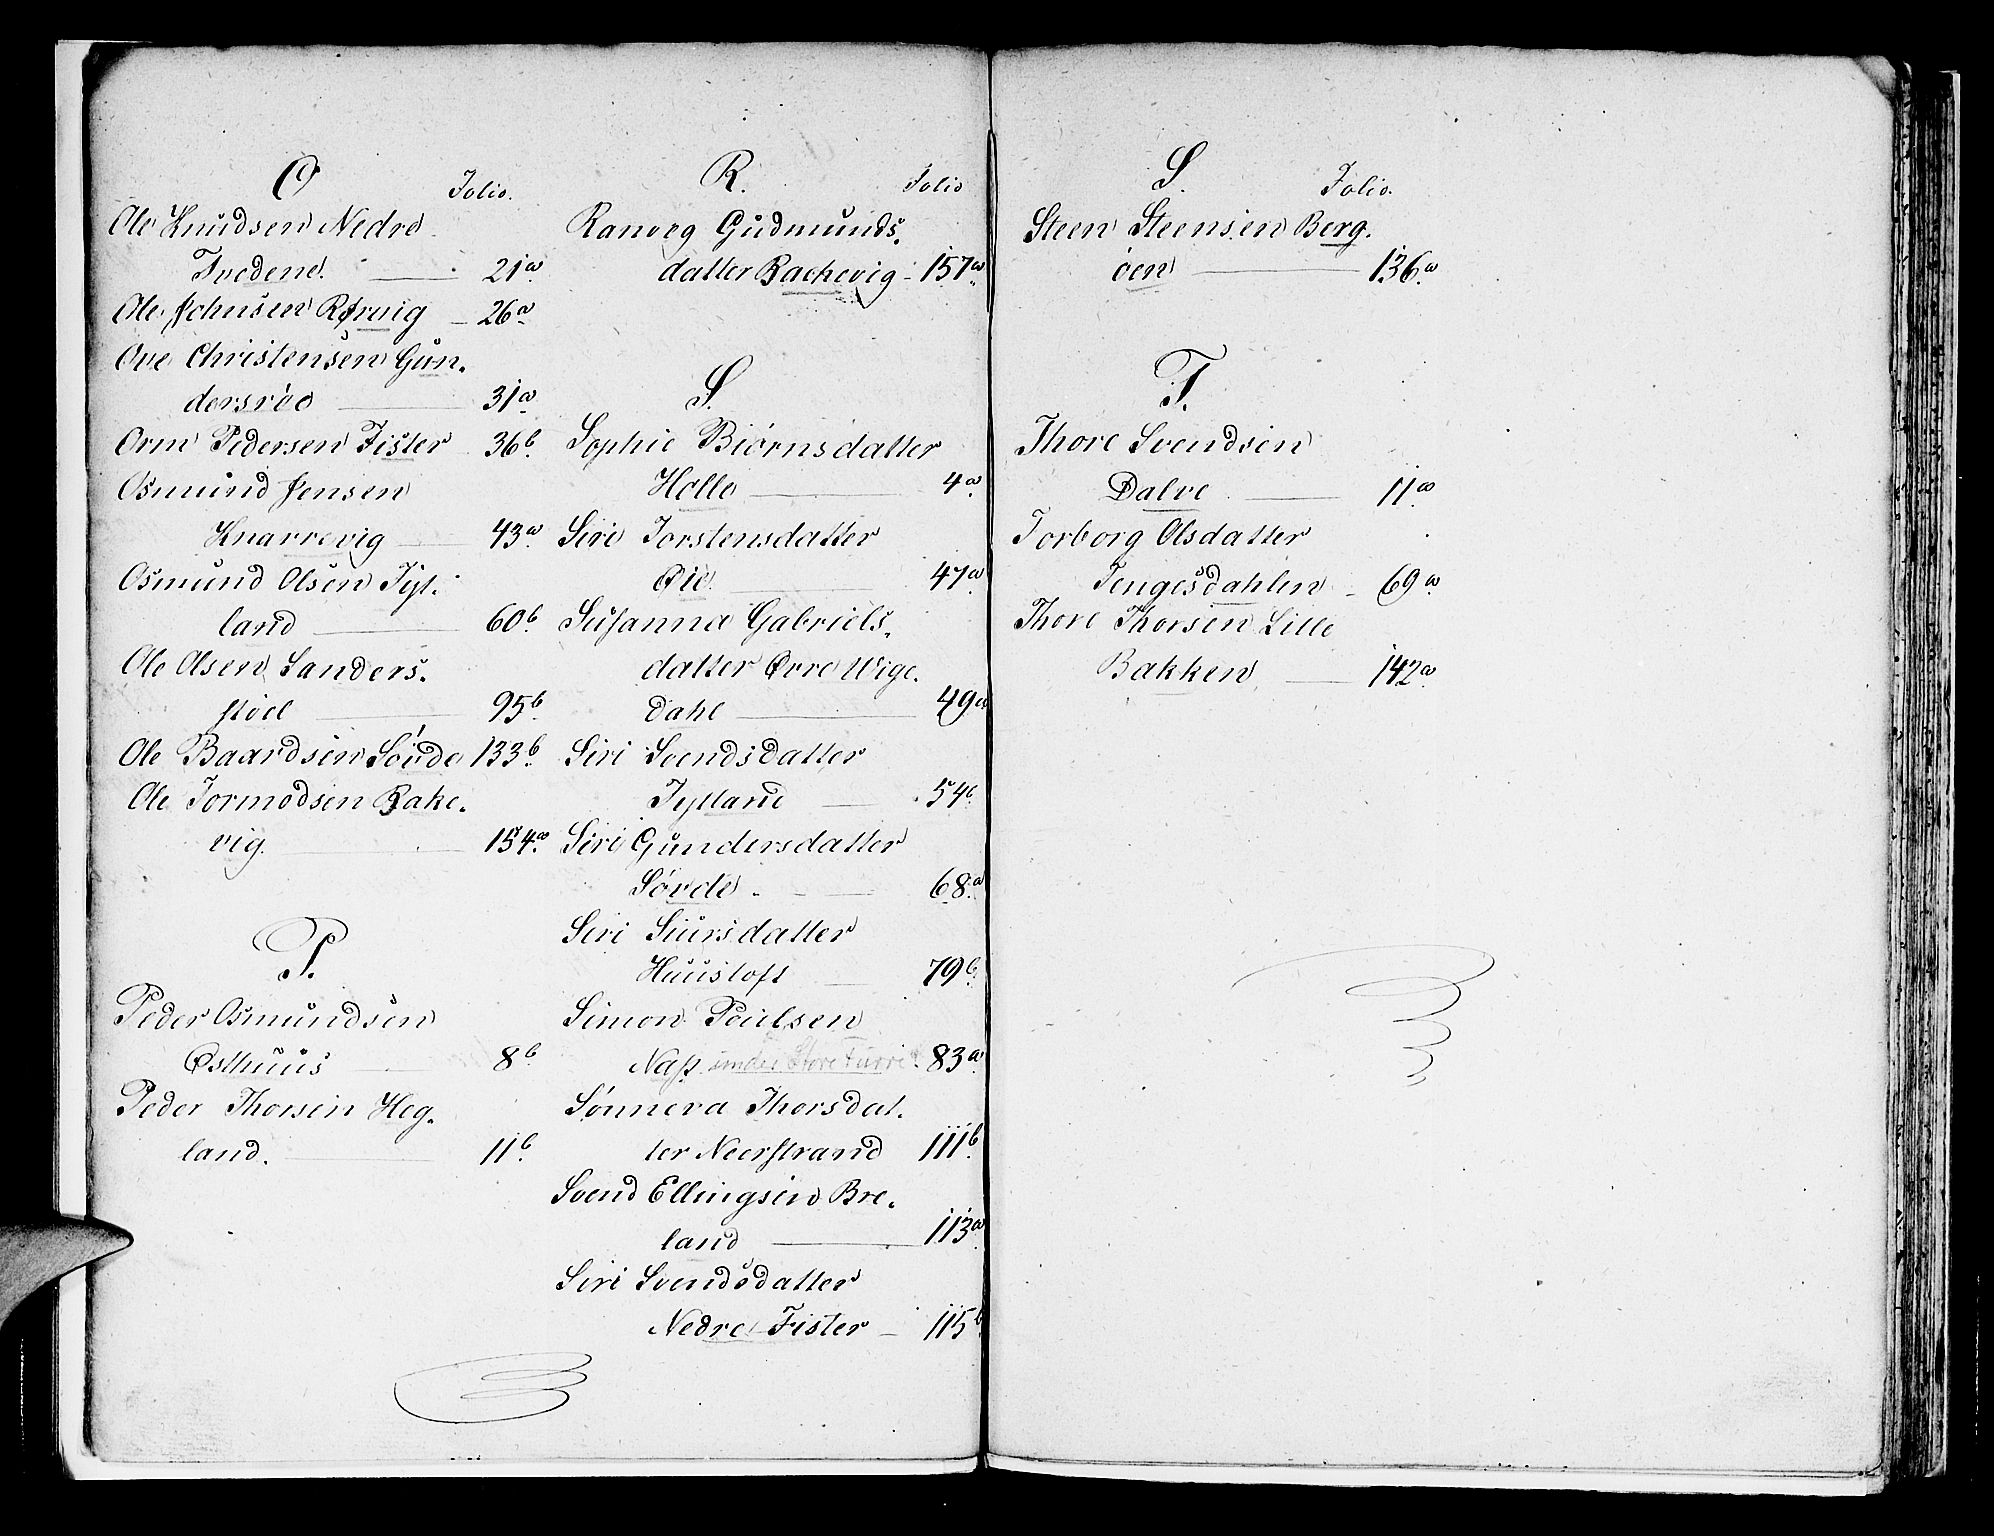 O
Folio.
Ole Knudsen Nedre
Tvedene. 21a
Ole Johnsen Rørvig 26a
Ove Christensen Gun-
dersröe 31a
Orm Pedersen Fister 36b
Osmund Jensen
Knarrevig 43a
Osmund Olsen Tyt-
land 60b
Ole Olsen Sanders-
støel 95b
Ole Baardsen Sövde 133b
Ole Tormodsen Rake-
vig. 154a
P.
Peder Osmundsen
Østhuus 8b
Peder Thorsen Heg-
land. 11b
R.
Folio
Ranveg Gudmunds-
datter Rackevig 157a
S.
Sophie Biörnsdatter
Halle 4a
Siri Torstensdatter
Øie 47a
Susanna Gabriels-
datter Øvre Vige-
dahl 49a
Siri Svendsdatter
Tytland 54b
Siri Gundersdatter
Sövde 68a
Siri Siursdatter
Huustoft 79b
Simon Poulsen
Næss under Store 83a
Sönneva Thorsdat-
ter Neerstrand 111b
Svend Ellingsen Bre-
land 113a
Siri Svendsdatter
Nedre Fister 115b
S.
Folio.
Steen Steensen Berg-
öen 136a
T.
Thore Svendsen
Dalve 11a
Torborg Olsdatter
Tengesdahlen 69a
Thore Thorsen Lille
Bakken 142a